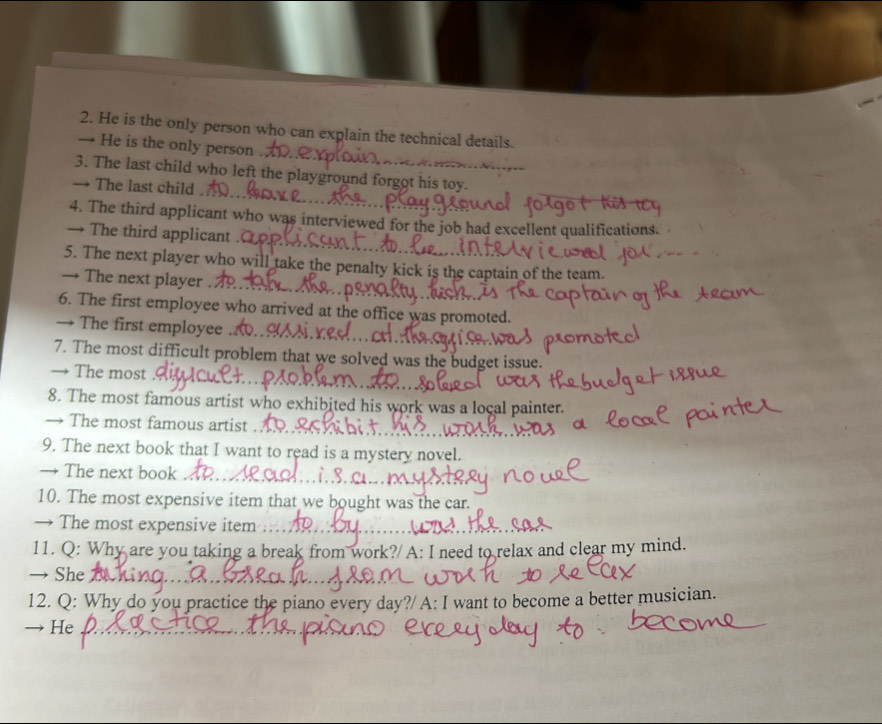 2. He is the only person who can explain the technical details.
→ He is the only person to explain
3. The last child who left the playground forgot his toy.
→ The last child to leave the playground forgot his toy
4. The third applicant who was interviewed for the job had excellent qualifications.
→ The third applicant applicant to be interviewed for
5. The next player who will take the penalty kick is the captain of the team.
→ The next player to take the penalty kick is the captain of the team
6. The first employee who arrived at the office was promoted.
→ The first employee to arrived at the office was promoted
7. The most difficult problem that we solved was the budget issue.
→ The most difficult problem to solved was the budget issue
8. The most famous artist who exhibited his work was a local painter.
→ The most famous artist to exhibit his work was a local painter
9. The next book that I want to read is a mystery novel.
→ The next book to read is a mystery novel
10. The most expensive item that we bought was the car.
→ The most expensive item to by was the car
11. Q: Why are you taking a break from work?/ A: I need to relax and clear my mind.
→ She taking a break from work to relax
12. Q: Why do you practice the piano every day?/ A: I want to become a better musician.
→ He practice the piano every day to become